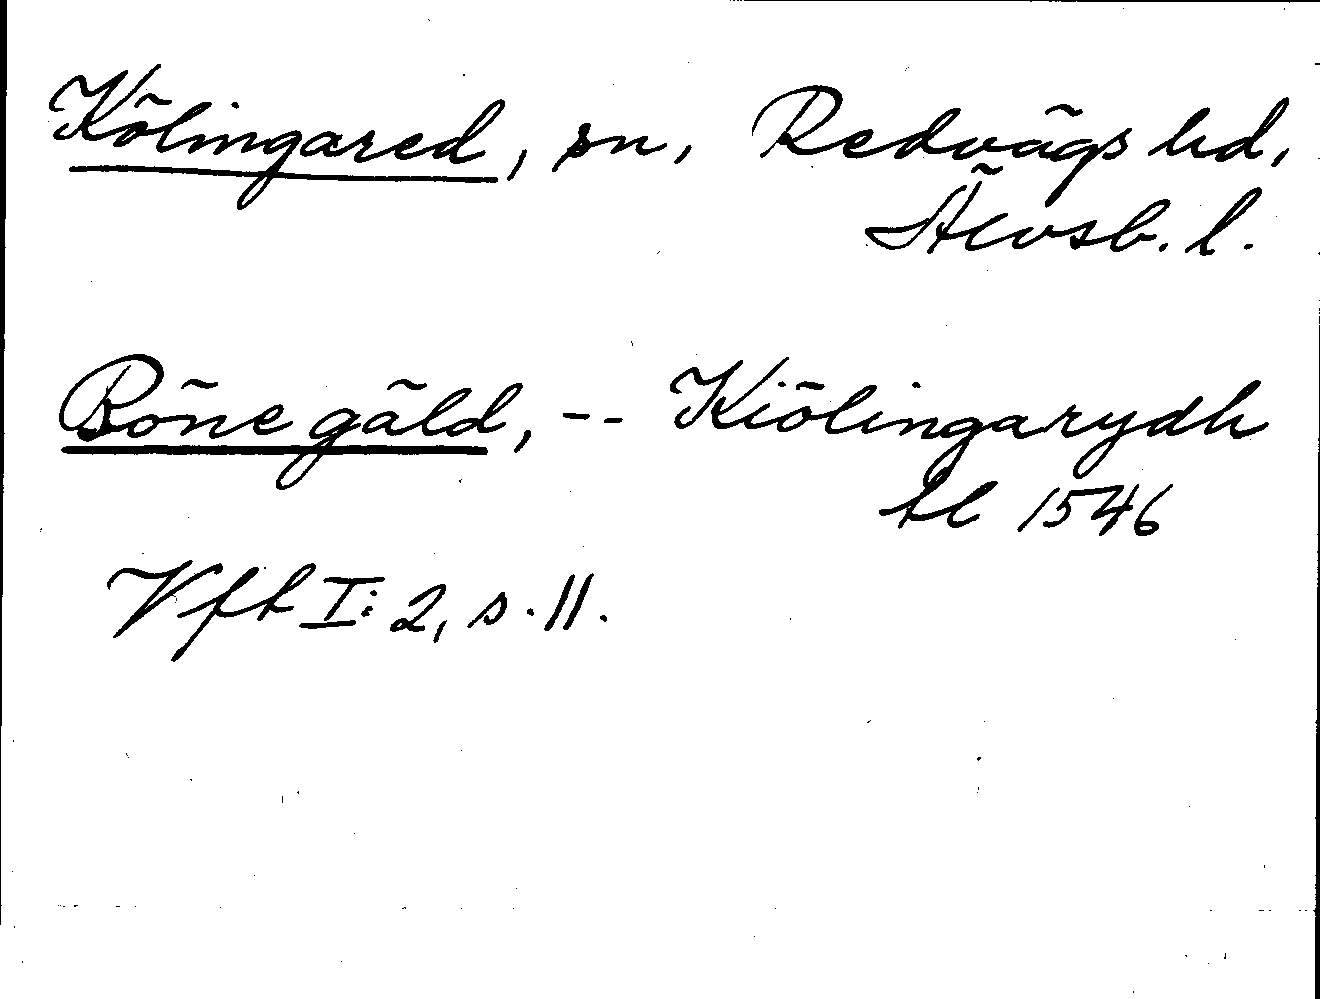 Kölingared, sn, Redvägs hd,
Älvsb. l.
Böne gäld, -- Kiölingarydh
tl 1546
Vft I:2, s. 11.